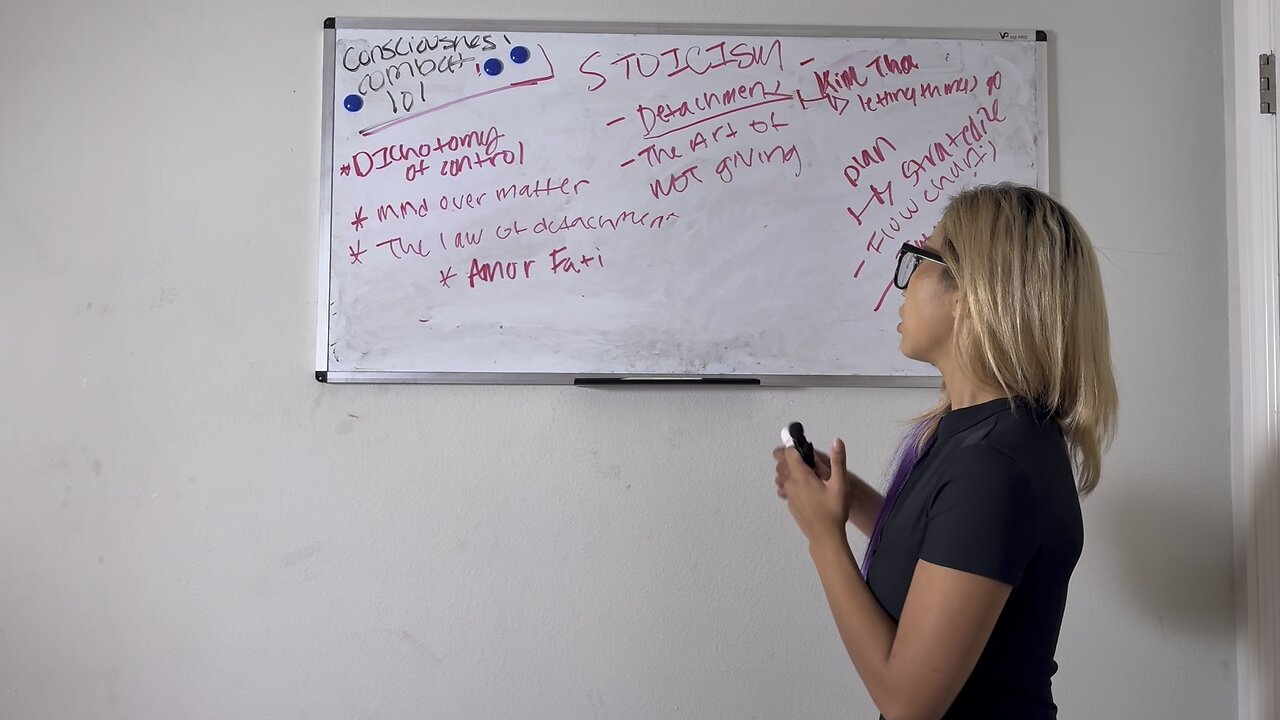 consciousness!
combat!
lol
STOICISM
- Detachment
- The Art of
not giving
- Kim Tha
letting things go
plan
strategize
- Flow chart
*Dichotomy
of control
* mind over matter
* The law of detachment
* Amor Fati
VIZ-PRO